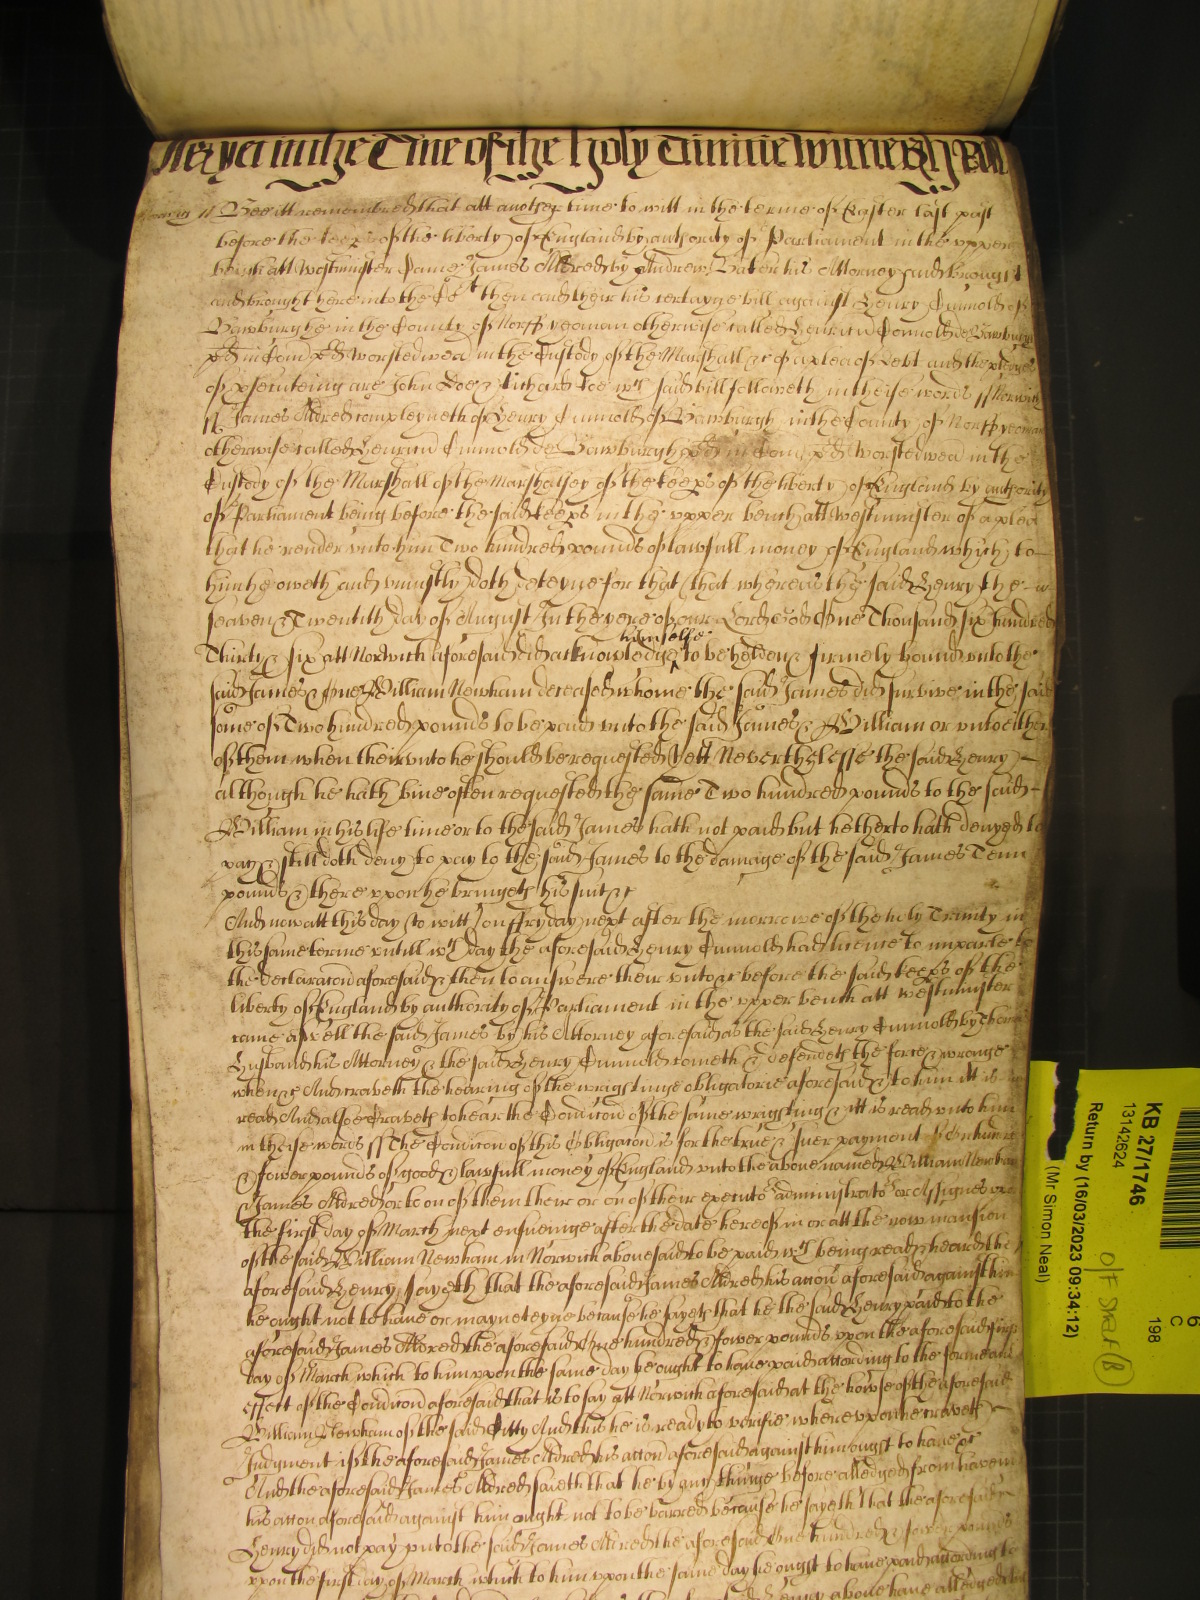 As yet in the Tme of the holy Trinitie Wittnes H: Roll
Bee itt remembred that att another time to witt in the terme of Easter last past
before the keeps of the liberty of England by authority of Parliament in the upper
bench att Westminster Came James Aldred by Andrew Baker his Attorney and brought
and brought here into the Cot then and their his certayne bill against Henry Cunnold of
Bawburghe in the County of Norff yeoman otherwise called Henricu Cunnold de Bawburgh
pd in Com pd worstedwea in the Custody of the Marshall &c of a plea of Debt and the pledges
of psecuteing are John Doe & Richard Roe wch said bill followeth in theise words ss Norwich
ss James Aldred compleyneth of Henry Cunnold of Bawburgh in the County of Norff yeoman
otherwise called Henricu Cunnold de Bawburgh pd in Com pd Worstedwea in the
Custody of the Marshall of the Marshalsey of the keeps of the liberty of England by authority
of Parliament being before the said keeps in the upper bench att Westminster of a plea
that he render unto him Two hundred pounds of lawfull money of England which to
him he oweth and uniustly doth deteyne for that that whereas the said Henry the
seaven & Twentith day of August In the yere of our Lord God One Thousand six hundred
Thirty & six att Norwich aforesaid did acknowledge himselfe to be holden & firmely bound unto the
said James & one William Newham deceased whome the said James did survive in the said
some of Two hundred pounds to be paid unto the said James & William or unto either
of them when theirunto he should be requested Yett Neverthelesse the said Henry
although he hath bine often requested the same Two hundred pounds to the said
William in his life time or to the said James hath not paid but hetherto hath denyed to
pay & still doth deny to pay to the said James to the damage of the said James Tenn
pounds & there upon he bringeth his suit &c
And now att this day to witt on ffryday next after the morrowe of the holy Trinity in
this same terme untill wch day the aforesaid Henry Cunnold had licence to imparle to
the declaracon aforesaid & then to answere their unto &c before the said keeps of the
liberty of England by authority of Parliament in the upper bench att Westminster
came aswell the said James by his Attorney aforesaid as the said Henry Cunnold by Thomas
Husband his Attorney & the said Henry Cunnold cometh & defendeth the force & wronge
when &c And craveth the hearing of the wrightinge obligatorie aforesaid & to him itt is
read And alsoe Craveth to hear the Condicon of the same wrighting & itt is read unto him
in theise words ss The Condicon of this Obligacon is for the true & suer payment of One hundred
& fower pounds of good & lawfull money of England unto the above named William Newham
& James Aldred or to on of them their or on of their executors administrators or Assignes upon
the first day of March next ensueinge after the date hereof in or att the now mansion
of the said William Newham in Norwich abovesaid to be paid wch being read & heard the
aforesaid Henry sayeth that the aforesaid James Aldred his accon aforesaid against him
he ought not to have or mayneteyne because he sayeth that he the said Henry paid to the
aforesaid James Aldred the aforesaid One hundred & fower pounds upon the aforesaid first
day of March which to him upon the same day he ought to have paid according to the forme and
effect of the Condicon aforesaid that is to say att Norwich aforesaid at the howse of the aforesaid
William Newham of the said Citty And this he is ready to verifie where upon he craveth
Judgment if the aforesaid James Aldred his accon aforesaid against him ought to have &c
And the aforesaid James Aldred saieth that he by any thinge before alledged from haveing
his accon aforesaid against him ought not to be barred because he sayeth that the aforesaid
Henry did not pay unto the said James Aldred the aforesaid One hundred & fower pounds
upon the first day of March which to him upon the same day he ought to have paid according to
Henry above have alledged
KB 27/1746
13142624
Return by (16/03/2023 09:34:12)
(Mr Simon Neal)
198
C
6
O/F Shelf (B)